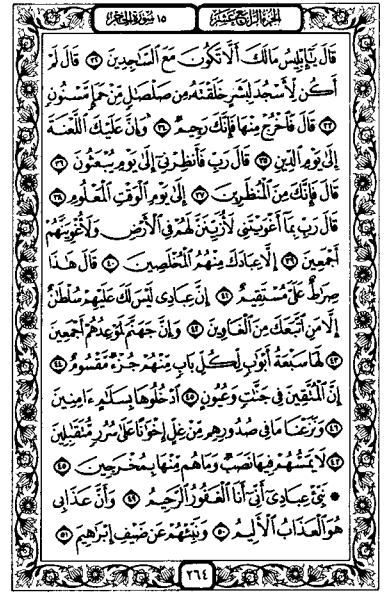 الجزء الرابع عشر
١٥ سورة الحجر
قَالَ يَٰٓإِبْلِيسُ مَا لَكَ أَلَّا تَكُونَ مَعَ ٱلسَّٰجِدِينَ ٣٢ قَالَ لَمْ
أَكُن لِّأَسْجُدَ لِبَشَرٍ خَلَقْتَهُۥ مِن صَلْصَٰلٍ مِّنْ حَمَإٍ مَّسْنُونٍ
٣٣ قَالَ فَٱخْرُجْ مِنْهَا فَإِنَّكَ رَجِيمٌ ٣٤ وَإِنَّ عَلَيْكَ ٱللَّعْنَةَ
إِلَىٰ يَوْمِ ٱلدِّينِ ٣٥ قَالَ رَبِّ فَأَنظِرْنِىٓ إِلَىٰ يَوْمِ يُبْعَثُونَ ٣٦
قَالَ فَإِنَّكَ مِنَ ٱلْمُنظَرِينَ ٣٧ إِلَىٰ يَوْمِ ٱلْوَقْتِ ٱلْمَعْلُومِ ٣٨
قَالَ رَبِّ بِمَآ أَغْوَيْتَنِى لَأُزَيِّنَنَّ لَهُمْ فِى ٱلْأَرْضِ وَلَأُغْوِيَنَّهُمْ
أَجْمَعِينَ ٣٩ إِلَّا عِبَادَكَ مِنْهُمُ ٱلْمُخْلَصِينَ ٤٠ قَالَ هَٰذَا
صِرَٰطٌ عَلَىَّ مُسْتَقِيمٌ ٤١ إِنَّ عِبَادِى لَيْسَ لَكَ عَلَيْهِمْ سُلْطَٰنٌ
إِلَّا مَنِ ٱتَّبَعَكَ مِنَ ٱلْغَاوِينَ ٤٢ وَإِنَّ جَهَنَّمَ لَمَوْعِدُهُمْ أَجْمَعِينَ
٤٣ لَهَا سَبْعَةُ أَبْوَٰبٍ لِّكُلِّ بَابٍ مِّنْهُمْ جُزْءٌ مَّقْسُومٌ ٤٤
إِنَّ ٱلْمُتَّقِينَ فِى جَنَّٰتٍ وَعُيُونٍ ٤٥ ٱدْخُلُوهَا بِسَلَٰمٍ ءَامِنِينَ
٤٦ وَنَزَعْنَا مَا فِى صُدُورِهِم مِّنْ غِلٍّ إِخْوَٰنًا عَلَىٰ سُرُرٍ مُّتَقَٰبِلِينَ
٤٧ لَا يَمَسُّهُمْ فِيهَا نَصَبٌ وَمَا هُم مِّنْهَا بِمُخْرَجِينَ ٤٨
۞ نَبِّئْ عِبَادِىٓ أَنِّىٓ أَنَا ٱلْغَفُورُ ٱلرَّحِيمُ ٤٩ وَأَنَّ عَذَابِى
هُوَ ٱلْعَذَابُ ٱلْأَلِيمُ ٥٠ وَنَبِّئْهُمْ عَن ضَيْفِ إِبْرَٰهِيمَ ٥١
٢٦٤